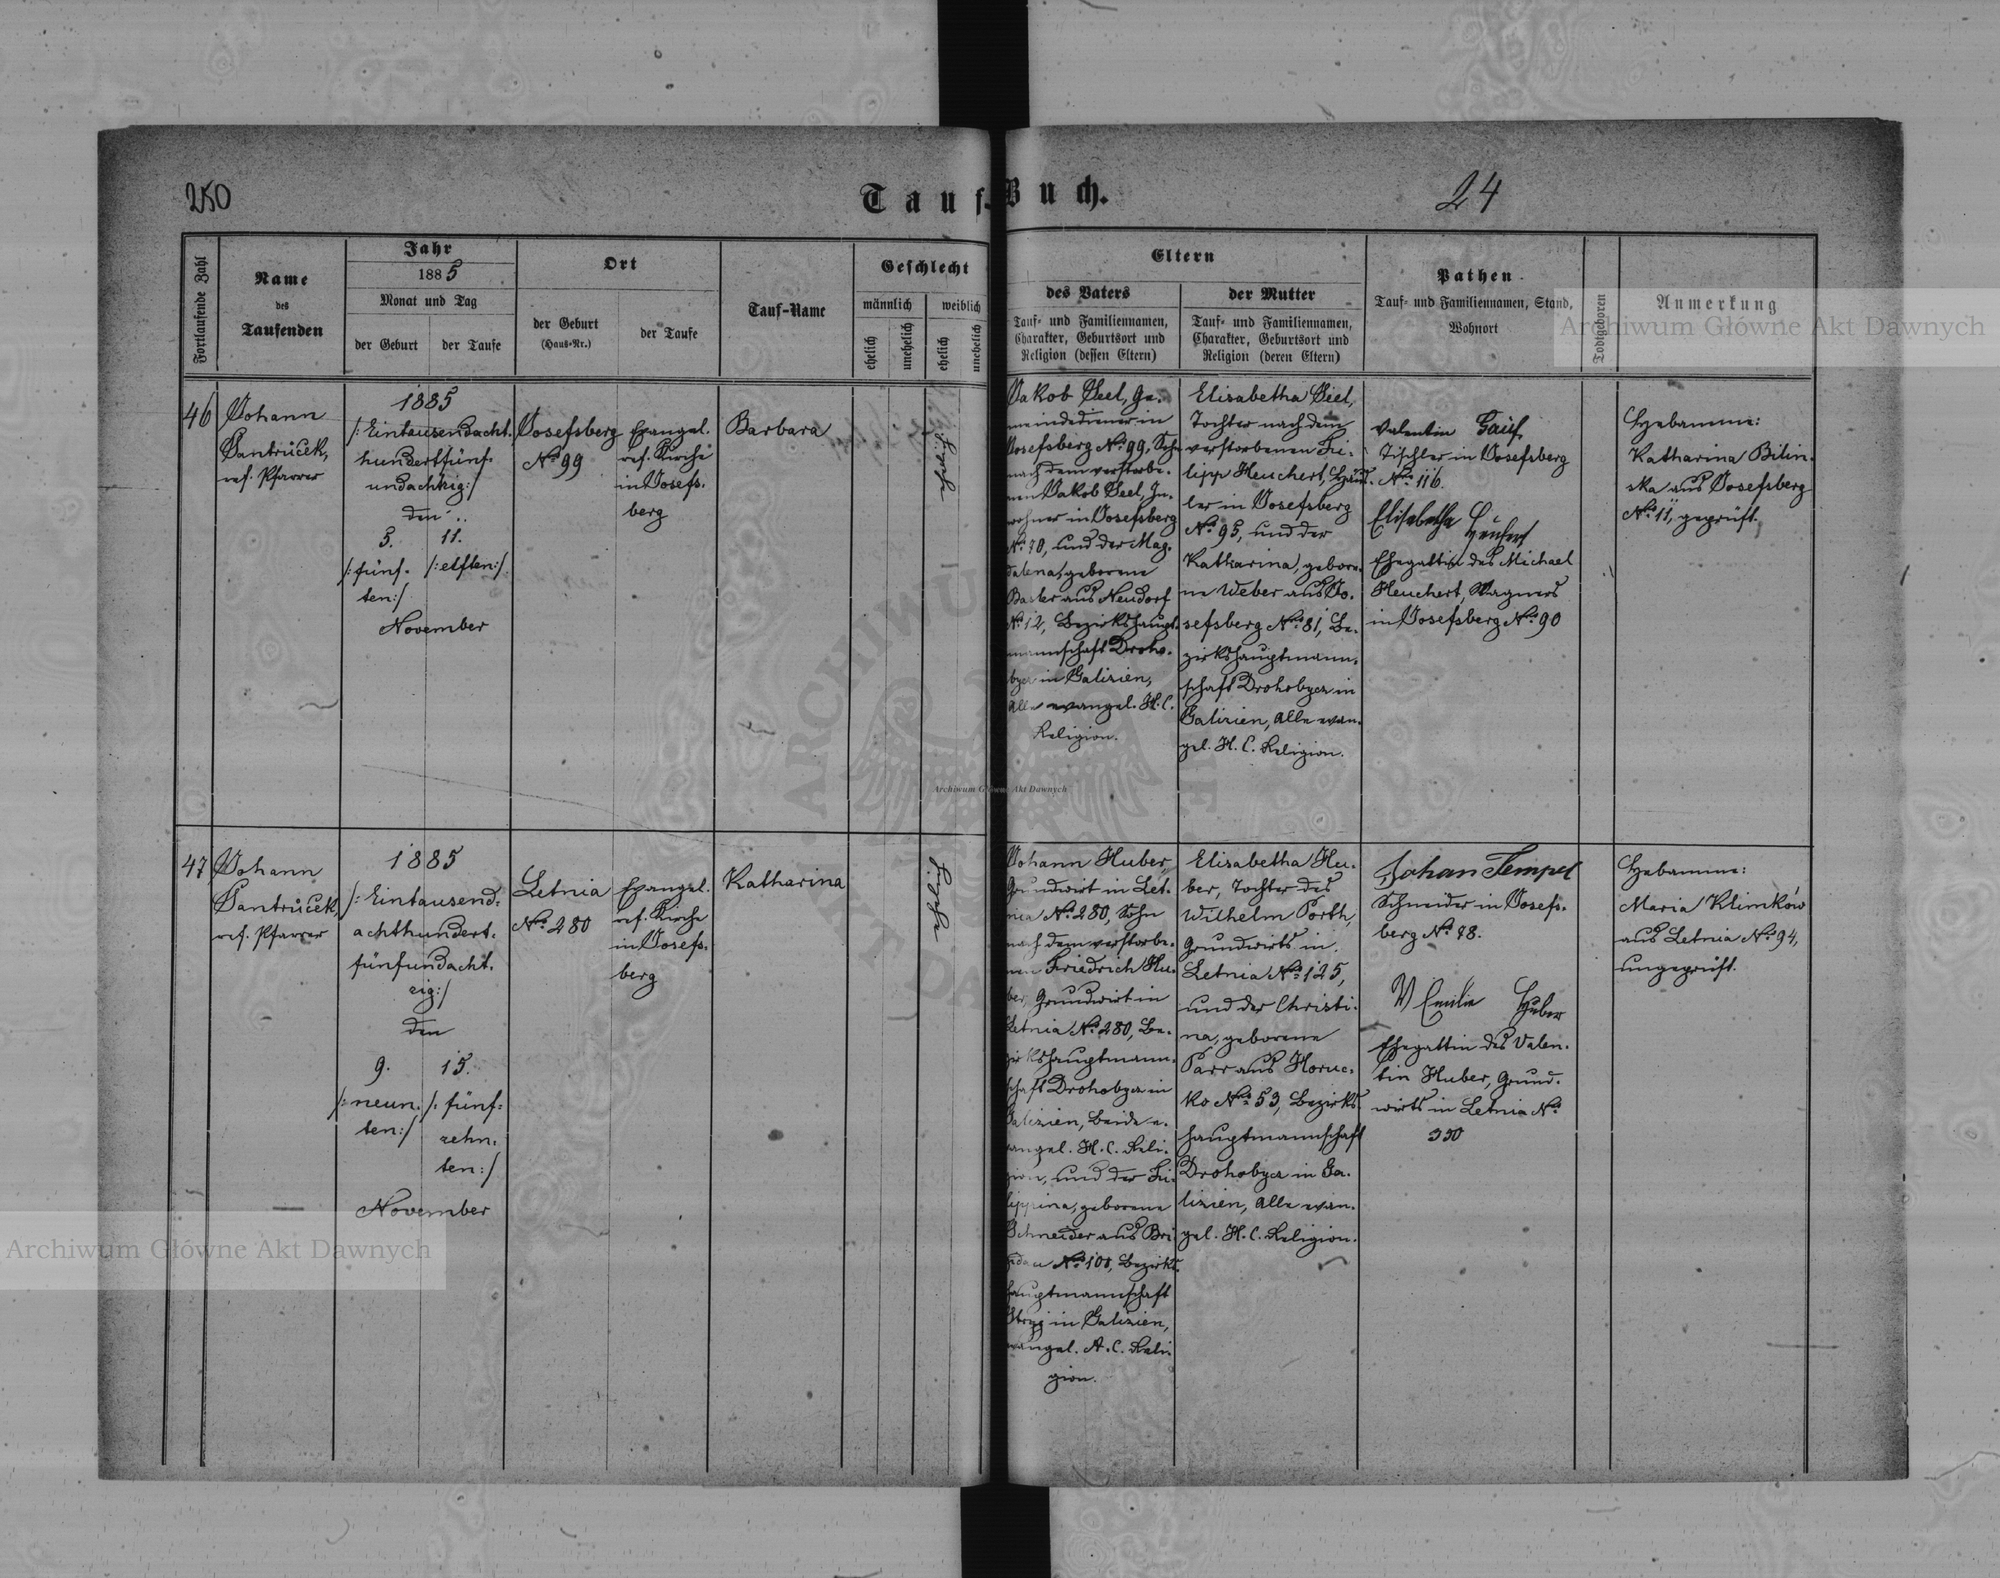 250
Tauf-Buch.
24
Fortlaufende Zahl
Name
des
Taufenden
Jahr
1885
Monat und Tag
der Geburt
der Taufe
Ort
der Geburt
(Haus-Nr.)
der Taufe
Tauf-Name
Geschlecht
männlich
weiblich
ehelich
unehelich
ehelich
unehelich
Eltern
des Vaters
Tauf- und Familiennamen,
Charakter, Geburtsort und
Religion (dessen Eltern)
der Mutter
Tauf- und Familiennamen,
Charakter, Geburtsort und
Religion (deren Eltern)
Pathen
Tauf- und Familiennamen, Stand,
Wohnort
Todtgeboren
Anmerkung
46
Johann
Jantrůček,
ref. Pfarrer
1885
/:Eintausendacht-
hundertfünf-
undachtzig:/
den
5.
/:fünf-
ten:/
11.
/:elften:/
November
Josefsberg
No 99
Evangel.
ref. Kirche
in Josefs-
berg
Barbara
Jakob Seel, Ge-
meindediener in
Josefsberg No 99, Sohn
nach dem verstorbe-
nen Jakob Seel, In-
wohner in Josefsberg
No 70, und der Mag-
dalena, geborene
aus Neudorf
No 12, Bezirkshaupt-
mannschaft Droho-
bycz in Galizien,
Alle evangel. H. C.
Religion.
Elisabetha Seel,
Tochter nach dem
verstorbenen Fi-
lipp Heuchert, Häus-
ler in Josefsberg
No 95, und der
Katharina, gebore-
ne Weber aus Jo-
sefsberg No 81, Be-
zirkshauptmann-
schaft Drohobycz in
Galizien, Alle evan-
gel. H. C. Religion.
Valentin Gauf
Tischler in Josefsberg
No 116.
Elisabetha
Heuchert
Ehegattin des Michael
Heuchert, Wagners
in Josefsberg No 90
Hebamme:
Katharina Bilin-
ska aus Josefsberg
No 11, geprüft.
47
Johann
Jantrůček,
ref. Pfarrer
1885
/:Eintausend-
achthundert-
fünfundacht-
zig:/
den
9.
/:neun-
ten:/
15.
/:fünf-
zehn-
ten:/
November
Letnia
No 280
Evangel.
ref. Kirche
in Josefs-
berg
Katharina
Johann Huber,
Grundwirt in Let-
nia No 280, Sohn
nach dem verstorbe-
nen Friedrich Hu-
ber, Grundwirt in
Letnia No 280, Be-
zirkshauptmann-
schaft Drohobycz in
Galizien, Beide e-
vangel. H. C. Reli-
gion, und der Fi-
lippina, geborene
Schneider aus Bri-
gidau No 100, Bezirks-
hauptmannschaft
Stryj in Galizien,
evangel. A. C. Reli-
gion.
Elisabetha Hu-
ber, Tochter des
Wilhelm Porth,
Grundwirts in
Letnia No 125,
und der Christi-
na, geborene
Parr aus Horuc-
ko No 53, Bezirks-
hauptmannschaft
Drohobycz in Ga-
lizien, Alle evan-
gel. H. C. Religion.
Johan Tempel
Schneider in Josefs-
berg No 78.
Emilie Huber
Ehegattin des Valen-
tin Huber, Grund-
wirts in Letnia No
330
Hebamme:
Maria Klimków
aus Letnia No 94,
ungeprüft.
Archiwum Główne Akt Dawnych
Archiwum Główne Akt Dawnych
Archiwum Główne Akt Dawnych